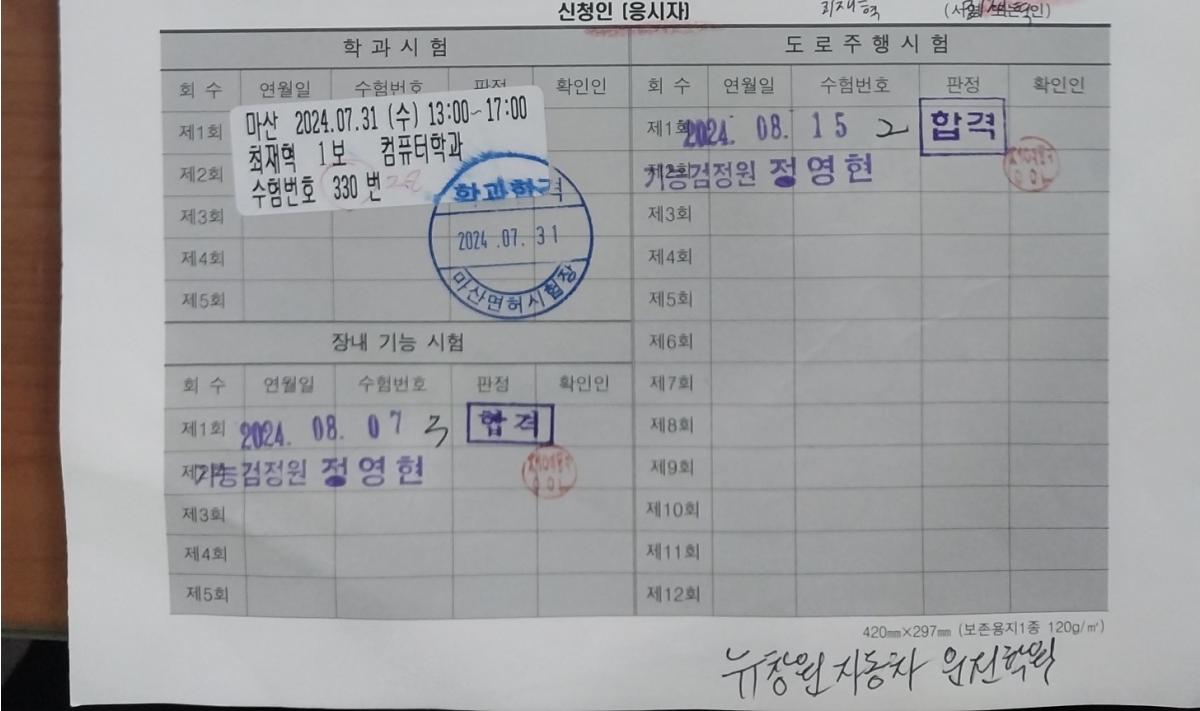 신청인 (응시자) 최재혁
학 과 시 험
회 수 연월일 수험번호 판정 확인인
마산 2024.07.31 (수) 13:00~17:00
제1회
최재혁 1보 컴퓨터학과
제2회
수험번호 330 번
학과합격
제3회
2024.07.31
제4회
마산면허시험장
제5회
장내 기능 시험
회 수 연월일 수험번호 판정 확인인
제1회 2024. 08. 07 3 합격
기능검정원 정영현
제3회
제4회
제5회
도 로 주 행 시 험
회 수 연월일 수험번호 판정 확인인
제1회 2024. 08. 15 2 합격
제2회 기능검정원 정영현
제3회
제4회
제5회
제6회
제7회
제8회
제9회
제10회
제11회
제12회
420㎜×297㎜ (보존용지1종 120g/㎡)
뉴창원자동차 운전학원